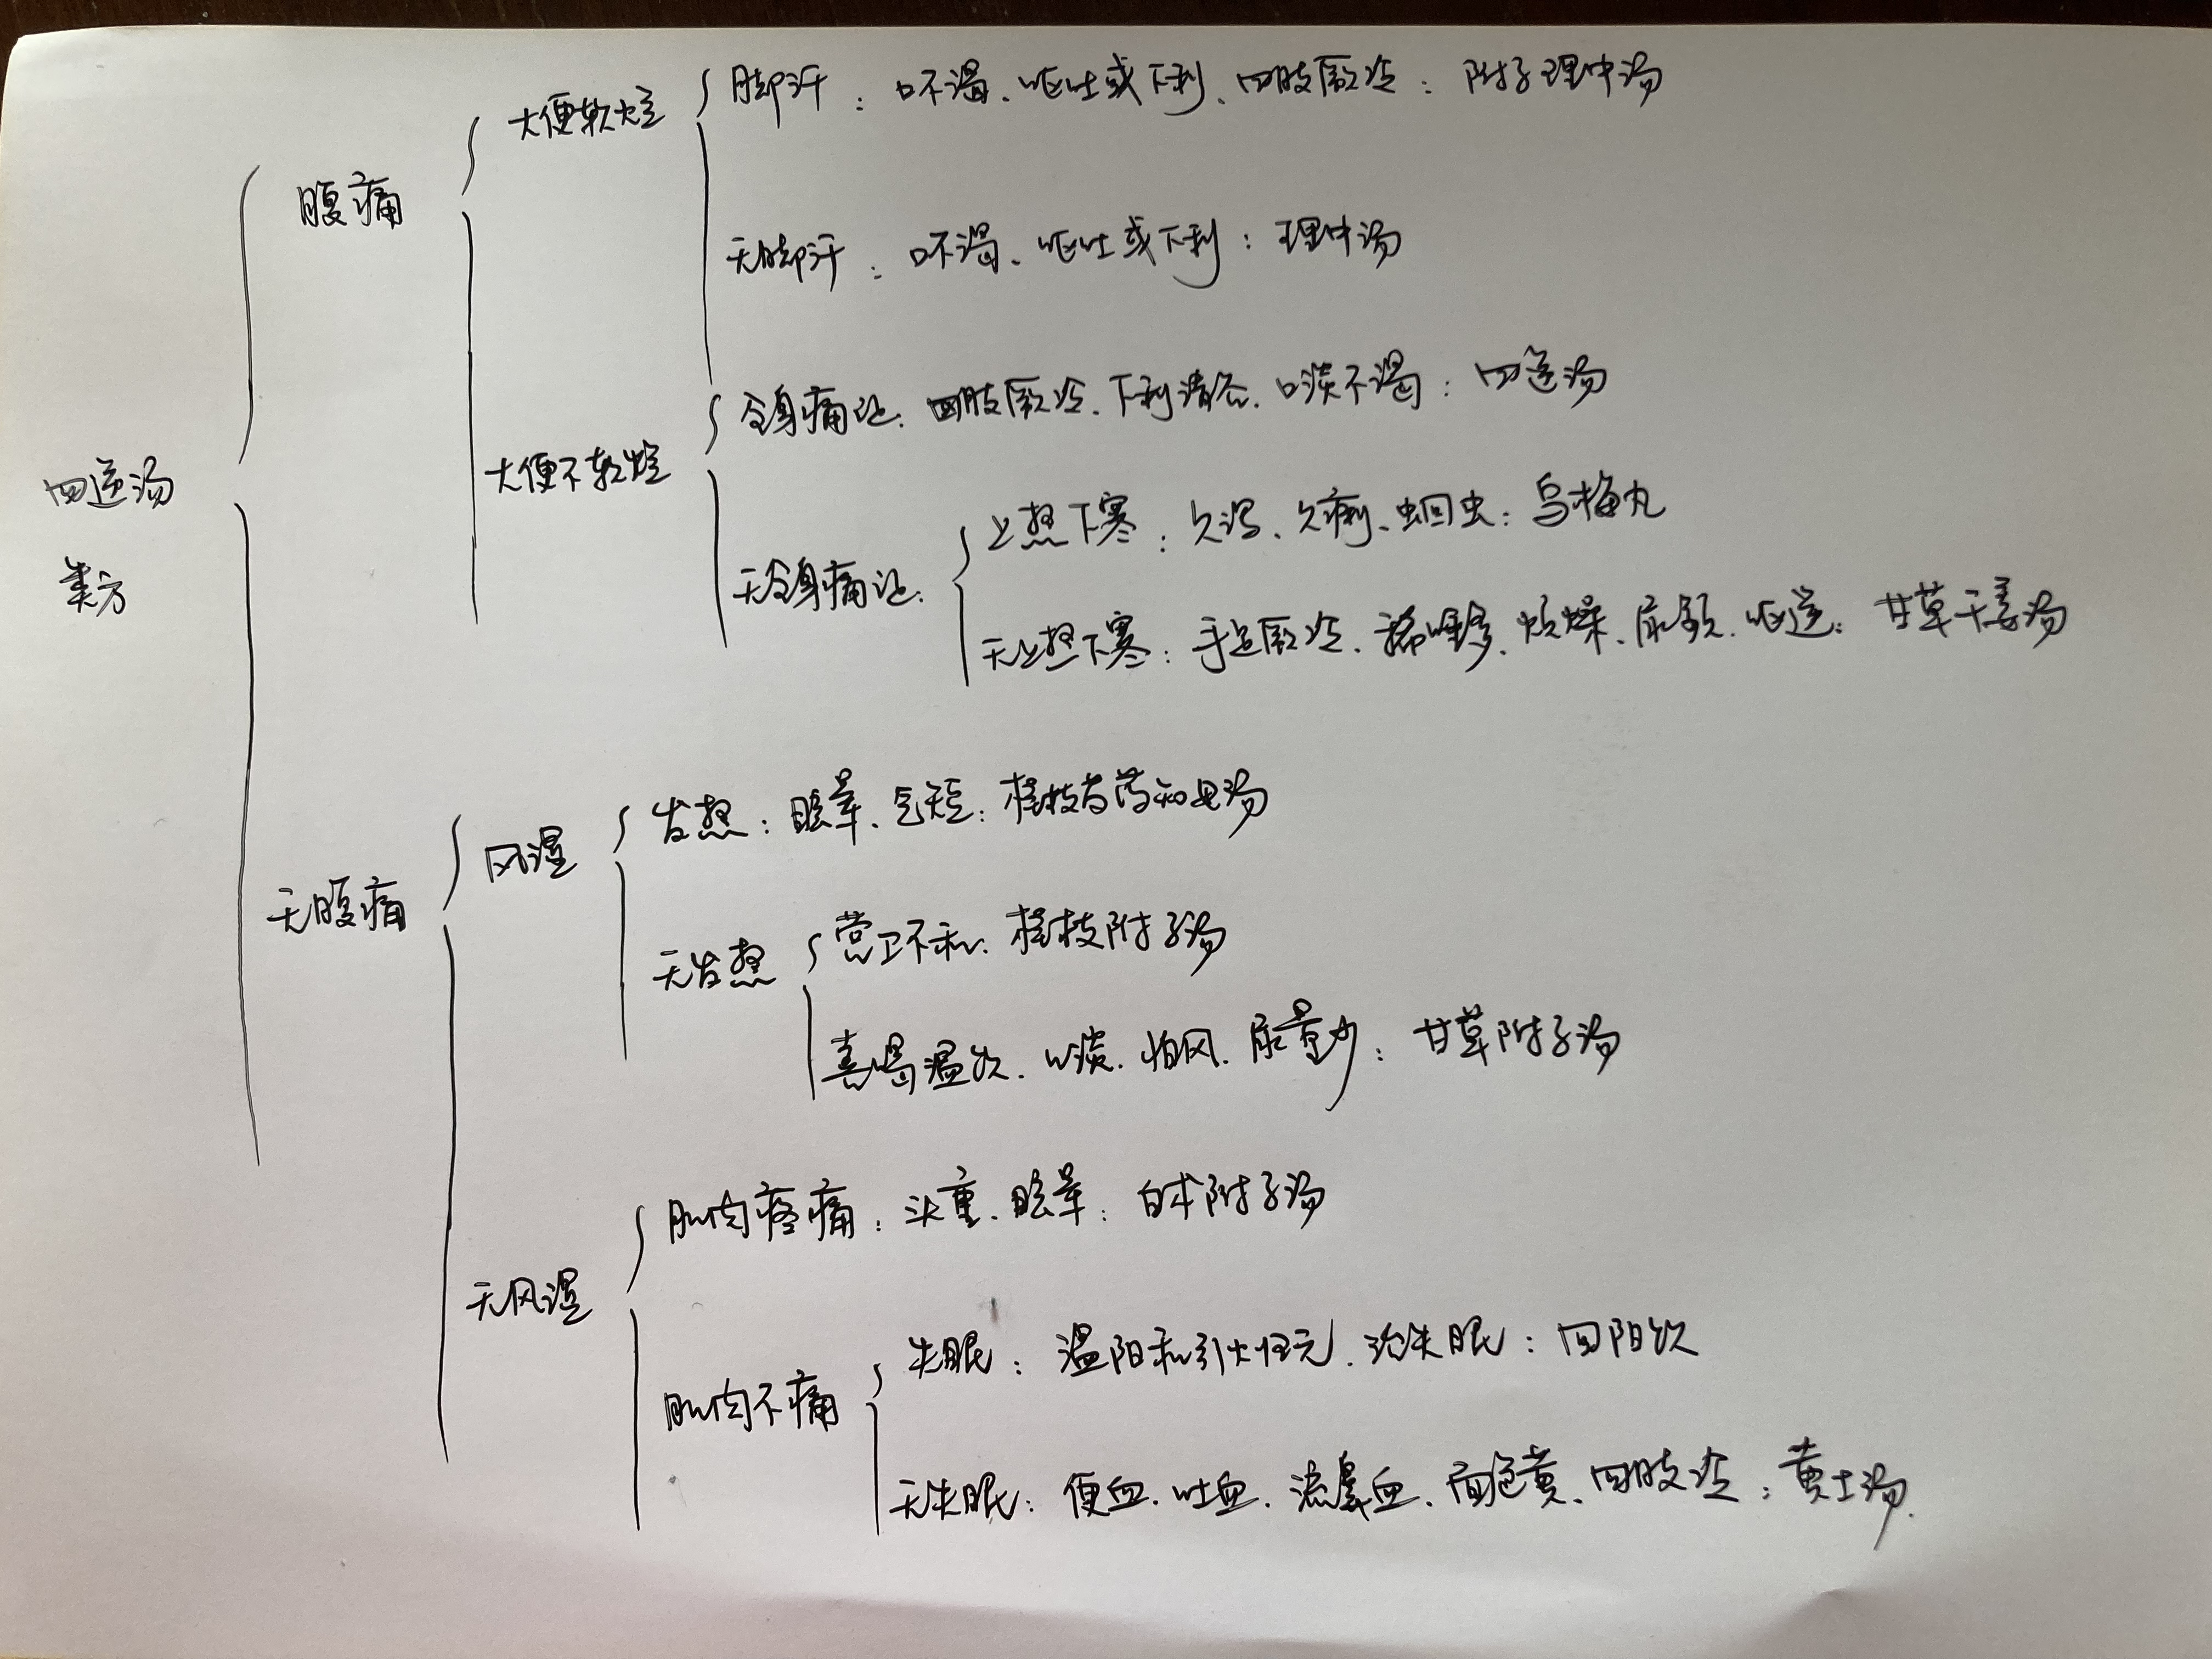 大便软烂 脚汗：口不渴、呕吐或下利、四肢厥冷：附子理中汤
腹痛
无脚汗：口不渴、呕吐或下利：理中汤
全身痛证：四肢厥冷、下利清谷、口淡不渴：四逆汤
大便不软烂
四逆汤
类方
上热下寒：久泻、久痢、蛔虫：乌梅丸
无全身痛证：
无上热下寒：手足厥冷、稀唾多、烦燥、尿频、呕逆：甘草干姜汤
发热：眩晕、气短：桂枝芍药知母汤
风湿
无腹痛
营卫不和：桂枝附子汤
无发热
喜喝温水、口淡、怕风、尿量少：甘草附子汤
肌肉疼痛：头重、眩晕：白术附子汤
无风湿
失眠：温阳和引火归元、治失眠：回阳饮
肌肉不痛
无失眠：便血、吐血、流鼻血、面色黄、四肢冷：黄土汤.